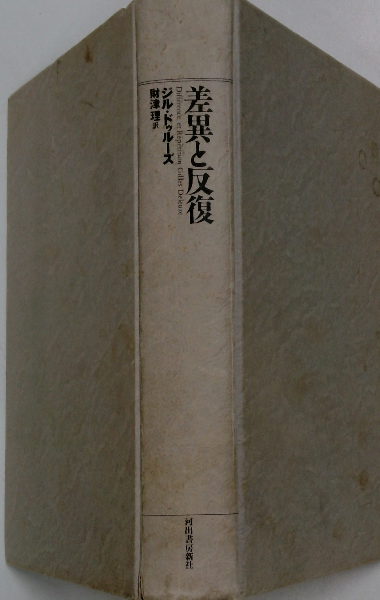 差異と反復
Différence et Répétition Gilles Deleuze
ジル・ドゥルーズ
財津理訳
河出書房新社